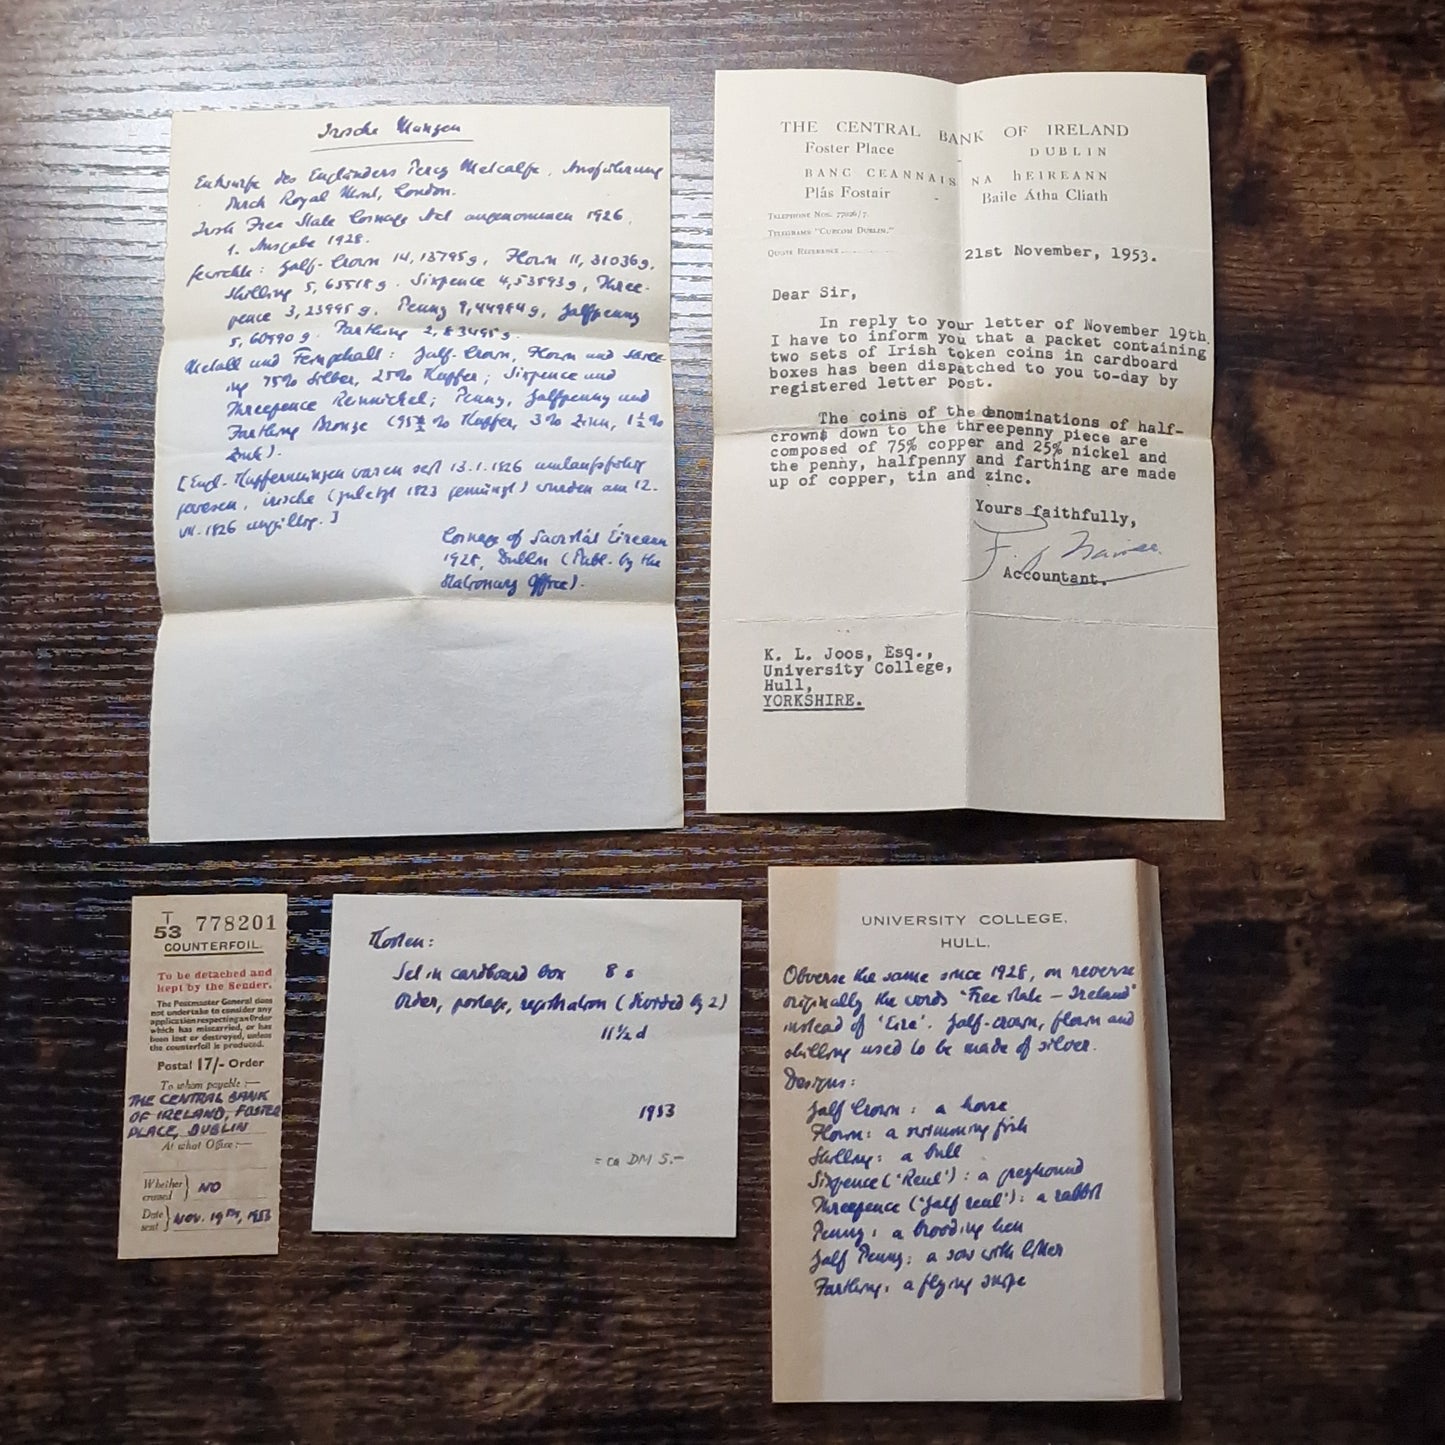 Irische Münzen
Entwürfe des Engländers Percy Metcalfe, Ausführung
durch Royal Mint, London.
Irish Free State Coinage Act angenommen 1926.
1. Ausgabe 1928.
Gewichte: Half-Crown 14,13795 g, Florin 11,31036 g,
Shilling 5,65518 g. Sixpence 4,53593 g, Three-
pence 3,23995 g. Penny 9,44984 g, Halfpenny
5,66990 g. Farthing 2,83495 g.
Metall und Feingehalt: Half-Crown, Florin und Shill-
ing 75% Silber, 25% Kupfer; Sixpence und
Threepence Reinnickel; Penny, Halfpenny und
Farthing Bronze (95½ % Kupfer, 3% Zinn, 1½ %
Zink).
[Engl. Kupfermünzen waren seit 13.1.1826 umlaufsfähig
gewesen, irische (zuletzt 1823 gemünzt) wurden am 12.
VII. 1826 ungültig.]
Coinage of Saorstát Éireann
1928, Dublin (Publ. by the
Stationary Office).
THE CENTRAL BANK OF IRELAND
Foster Place DUBLIN
BANC CEANNAIS NA hEIREANN
Plás Fostair Baile Átha Cliath
TELEPHONE NOS. 77026/7.
TELEGRAMS "CURCOM DUBLIN."
QUOTE REFERENCE
21st November, 1953.
Dear Sir,
In reply to your letter of November 19th,
I have to inform you that a packet containing
two sets of Irish token coins in cardboard
boxes has been dispatched to you to-day by
registered letter post.
The coins of the denominations of half-
crowns down to the threepenny piece are
composed of 75% copper and 25% nickel and
the penny, halfpenny and farthing are made
up of copper, tin and zinc.
Yours faithfully,
Accountant.
K. L. Joos, Esq.,
University College,
Hull,
YORKSHIRE.
T
53 778201
COUNTERFOIL.
To be detached and
kept by the Sender.
The Postmaster General does
not undertake to consider any
application respecting an Order
which has miscarried, or has
been lost or destroyed, unless
the counterfoil is produced.
Postal 17/- Order
To whom payable :—
THE CENTRAL BANK
OF IRELAND, FOSTER
PLACE, DUBLIN
At what Office:—
Whether
crossed } NO
Date
sent } NOV. 19TH, 1953
Kosten:
Set in cardboard box 8 s
Order, postage, registration (divided by 2)
11½ d
1953
= ca DM 5.-
UNIVERSITY COLLEGE,
HULL.
Obverse the same since 1928, on reverse
originally the words 'Free State – Ireland'
instead of 'Eire'. Half-crown, florin and
shilling used to be made of silver.
Designs:
Half Crown: a horse
Florin: a swimming fish
Shilling: a bull
Sixpence ('Reul'): a greyhound
Threepence ('Half reul'): a rabbit
Penny: a brooding hen
Half Penny: a sow with litter
Farthing: a flying snipe